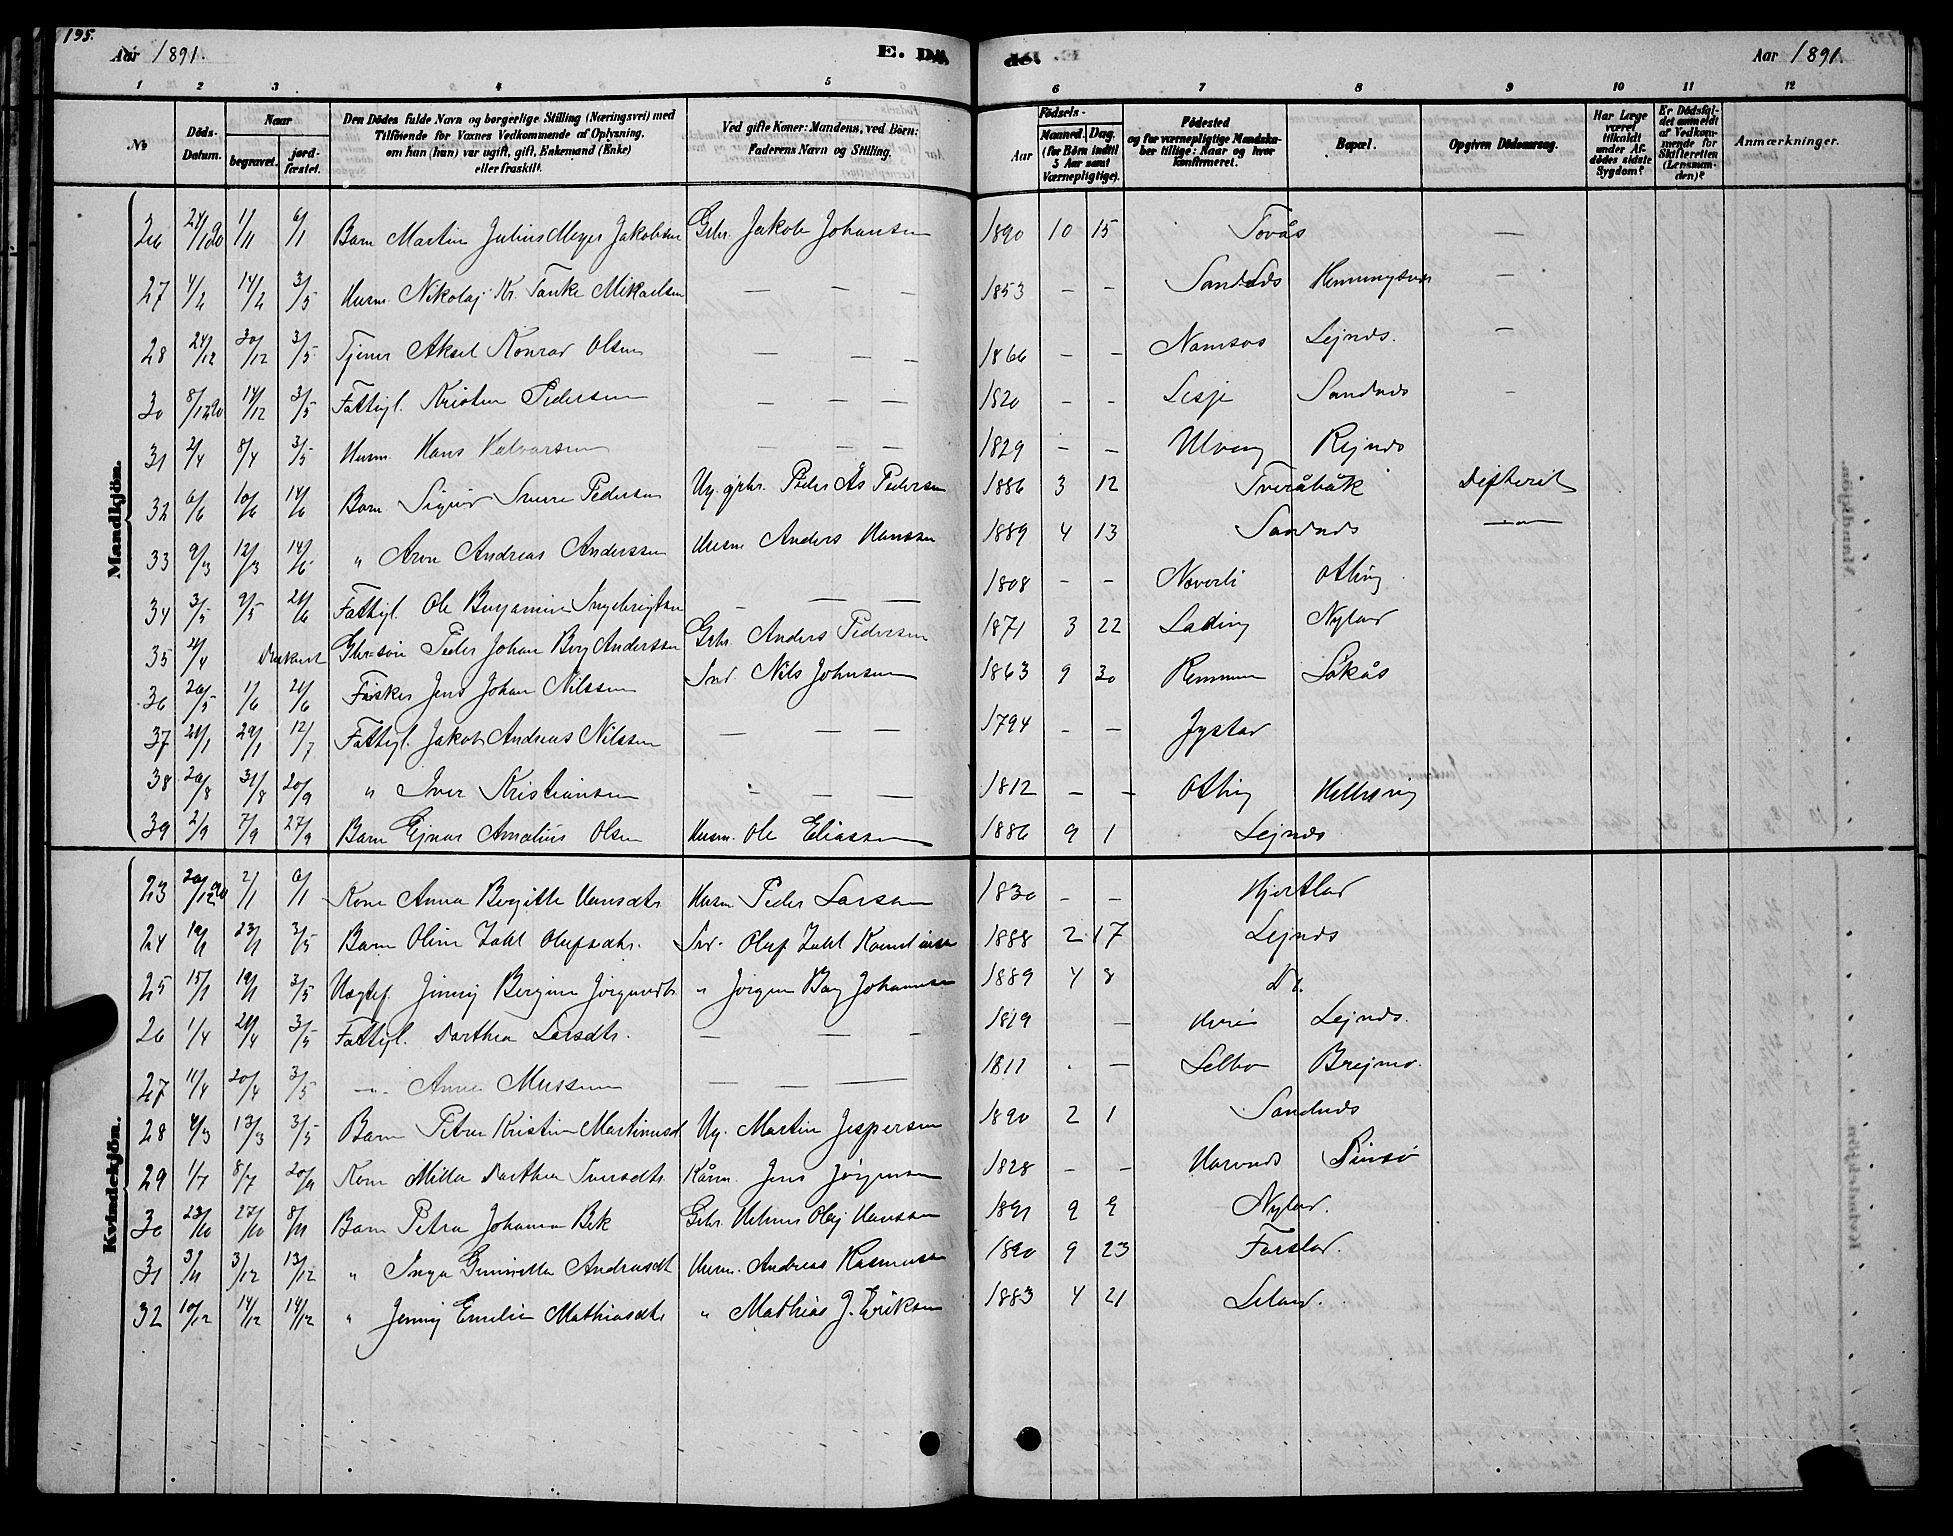 195.
Aar 1891. E. Dö, de. Aar 1891.
1 2 3 4 5 6 7 8 9 10 11 12
No
Döds-Datum.
Naar
begravet. jordfæstet.
Den Dödes fulde Navn og borgerlige Stilling (Næringsvei) med
Tilföiende for Voxnes Vedkommende af Oplysning,
om han (hun) var ugift, gift, Enkemand (Enke)
eller fraskilt.
Ved gifte Koner: Mandens, ved Börn:
Faderens Navn og Stilling.
Födsels-
Aar Maaned. Dag.
(for Börn indtil
5 Aar samt
Værnepligtige).
Födested
og for værnepligtige Mandska-
ber tillige: Naar og hvor
konfirmeret.
Bopæl.
Opgiven Dödsaarsag.
Har Læge
været
tilkaldt
under Af-
dödes sidste
Sygdom?
Er Dödsfal-
det anmeldt
af Vedkom-
mende for
Skifteretten
(Lensman-
den)?
Anmærkninger.
Mandkjön.
26 24/1 90 1/11 6/1 Barn Martin Julius Meyer Jakobsen Gbr. Jakob Johansen 1890 10 15 Tovås —
27 4/2 14/2 3/5 Husm. Nikolaj Kr. Tanke Mikaelsen — — — 1853 - - Sandnds —
28 24/12 30/12 3/5 Tjener Aksel Konrad Olsen — — — 1866 - - Namsos Lejnds. —
30 8/12 90 14/12 3/5 Fattigl. Kristen Pedersen — — — 1820 - - Lesje Sandnds -
31 2/4 8/4 3/5 Husm. Hans Halvorsen — — — 1829 - - Ulvang Rejnds
32 6/6 10/6 14/6 Barn Sigurd Sverre Pedersen Ug. gbr. Peder As Pedersen 1886 3 12 Tveråbåk Difterit
33 9/3 12/3 14/6 " Arne Andreas Anderssen Husm Anders Hanssen 1889 4 13 Sandnds —"—
34 3/5 9/5 21/6 Fattigl. Ole Benjamin Ingebrigtsen — — — 1808 - - Noverli Otting
35 2/4 Druknet Gbr. søn Peder Johan Berg Anderssen Gbr. Anders Pedersen 1871 3 22 Lading Nyland
36 20/5 1/6 21/6 Fisker Jens Johan Nilssen Ind. Nils Johnsen 1863 9 30 Remmen Låkås
37 21/1 29/1 12/7 Fattigl. Jakob Andreas Nilssen — — — 1794 - - Jystad
38 20/8 31/8 20/9 " Iver Kristiansen — — — 1812 - - Otting Hellesvig
39 2/9 7/9 27/9 Barn Ejnar Amatius Olsen Husm. Ole Eliassen 1886 9 1 Lejnds
Kvindekjön.
23 20/12 90 2/1 6/1 Kone Anna Birgitte Hansdtr Husm Peder Larsen 1830 - - Hjortland
24 19/1 23/1 3/5 Barn Oline Zahl Olufsdtr. Ind. Oluf Zahl 1888 2 17 Lejnds
25 15/1 19/1 3/5 Jenny Bergine Jørgensdtr " Jørgen Bay Johannsen 1889 4 8 Do.
26 1/4 21/4 3/5 Fattigl. Dorthea Larsdtr. — — - 1819 — Lejnds.
27 11/4 20/4 3/5 —"— Anne — — — 1811 . — Selbo Brejmo.
28 4/3 13/3 3/5 Barn Petra Kristine Martinusd Ug. Martin Jespersen 1890 2 1 Sandnds
29 1/7 8/7 20/9 Kone Milla Dorthea Iversdtr Kårm. Jens Jørgensen 1828 - - Havnnds
30 23/10 27/10 8/11 Barn Petra Johanna Bek Gbr. Helmer Olaj Hanssen 1891 9 9 Nyland.
31 3/11 3/12 13/12 " Inga Andreasdt Husm. Andreas Rasmussen 1890 9 23 Forsland.
32 10/12 14/12 14/12 " Jenny Emilie Mathiasdtr " Mathias J. Eriksen 1883 4 21 Leland.